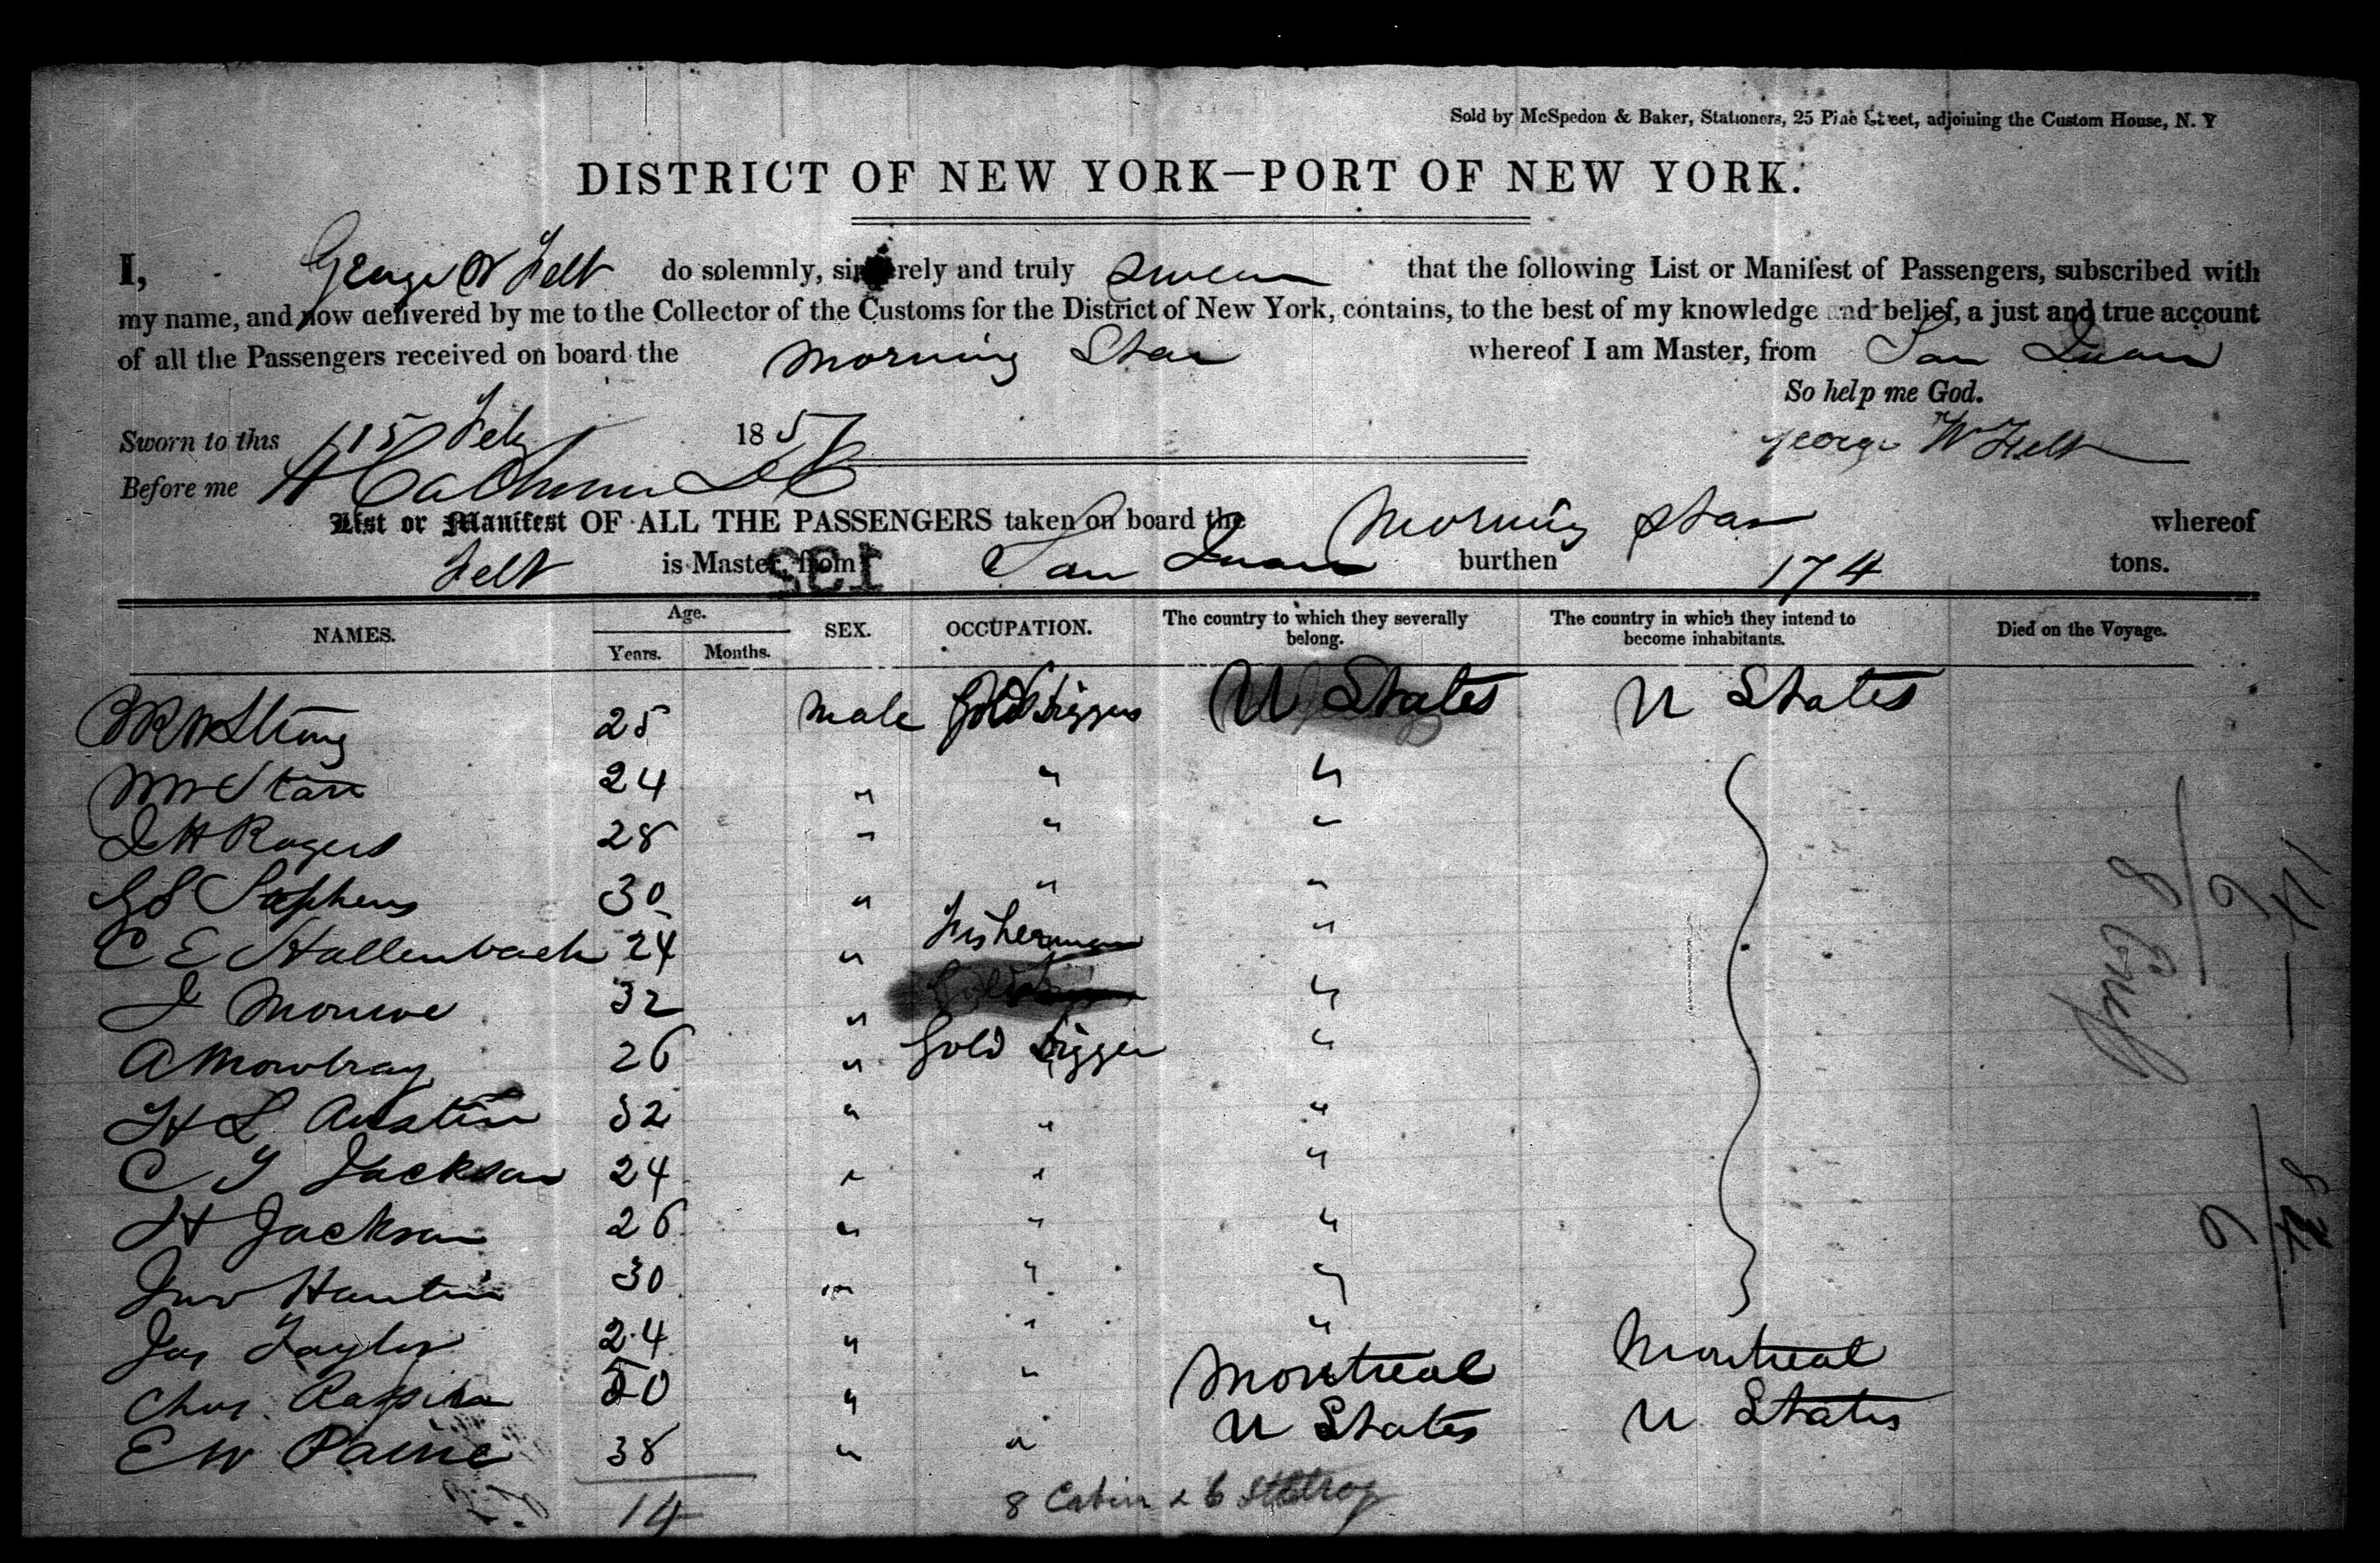 Sold by McSpedon & Baker, Stationers, 25 Pine Street, adjoining the Custom House, N. Y
DISTRICT OF NEW YORK—PORT OF NEW YORK.
I, George W Felt do solemnly, sincerely and truly swear that the following List or Manifest of Passengers, subscribed with
my name, and now delivered by me to the Collector of the Customs for the District of New York, contains, to the best of my knowledge and belief, a just and true account
of all the Passengers received on board the Morning Star whereof I am Master, from San Juan
So help me God.
Sworn to this 15 Feby 1857 George W Felt
Before me H Calhoun DC
List or Manifest OF ALL THE PASSENGERS taken on board the Morning Star whereof
Felt is Master, from San Juan burthen 174 tons.
192
NAMES. Age. Years. Months. SEX. OCCUPATION. The country to which they severally belong. The country in which they intend to become inhabitants. Died on the Voyage.
Strong 25 Male Gold Diggers U States U States
Wm Starr 24 " " "
J H Rogers 28 " " "
G S Stephens 30 " " "
C E Hallenbach 24 " Fisherman "
J Monroe 32 " "
A Mowbray 26 " Gold Digger "
H L Austin 32 " " "
C Y Jackson 24 " " "
H Jackson 26 " " "
Jno 30 " " "
Jas Taylor 24 " " "
Chas 50 " " Montreal Montreal
E W Paine 38 " " U States U States
14 8 Cabin & 6 Steerage